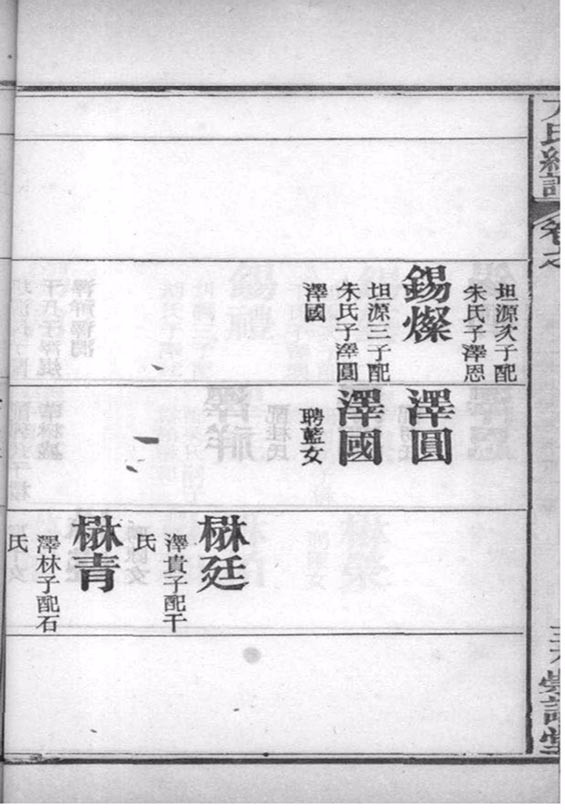 卷之
坦源次子配
朱氏子澤恩
錫燦
坦源三子配
朱氏子澤圓
澤國
澤圓
澤國
聘藍女
楙廷
澤貴子配干
氏
楙青
澤林子配石
氏